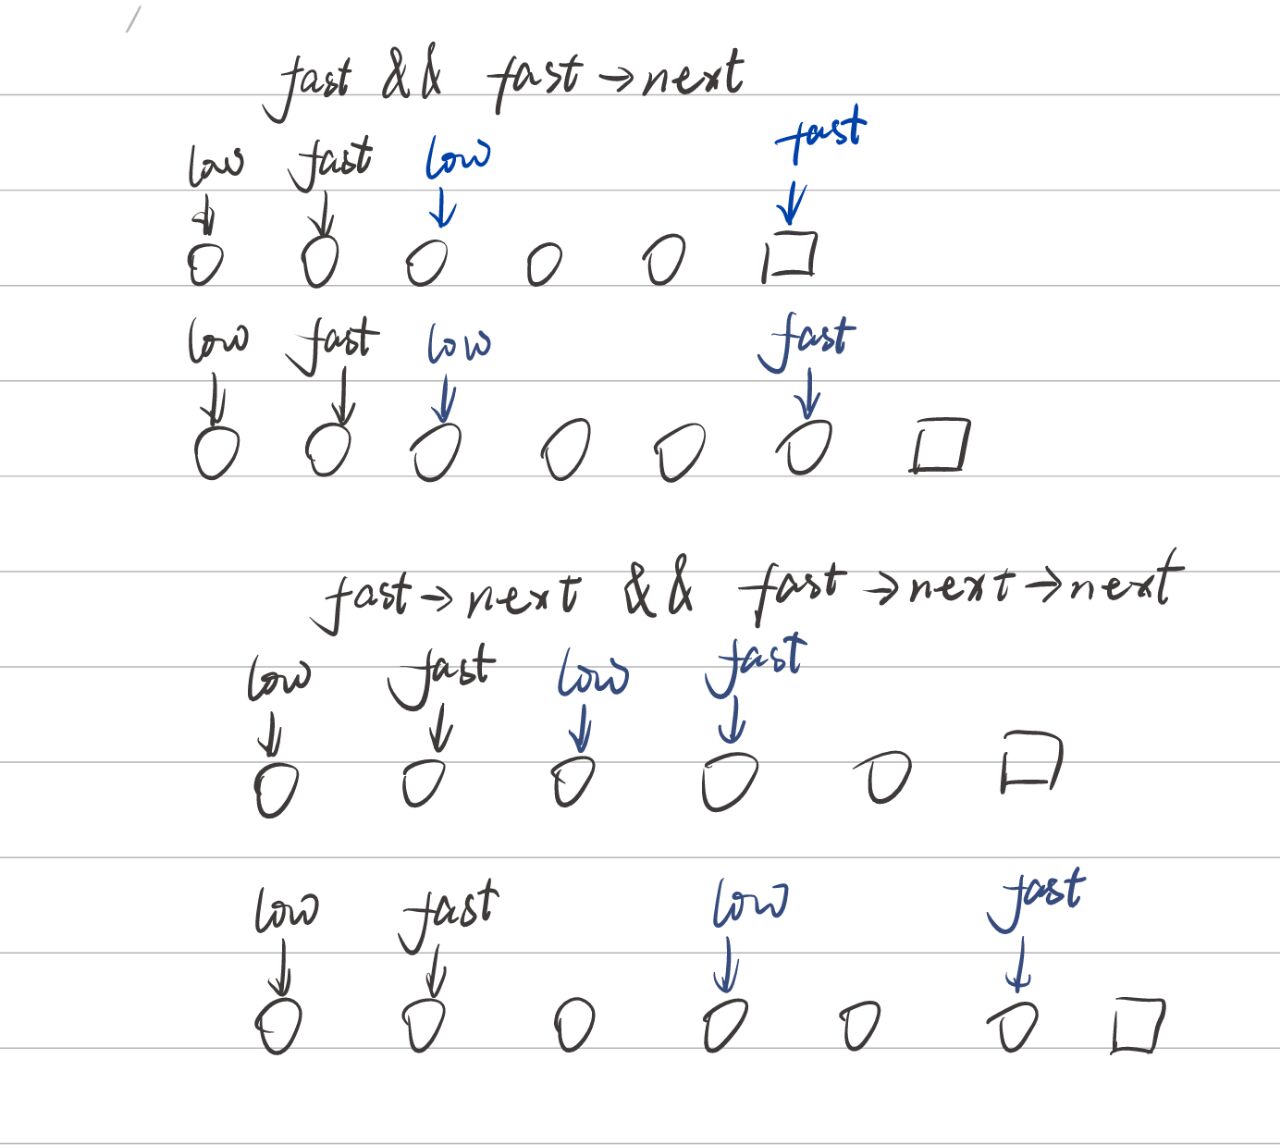 fast && fast→next
low fast low fast
low fast low fast
fast→next && fast→next→next
low fast low fast
low fast low fast